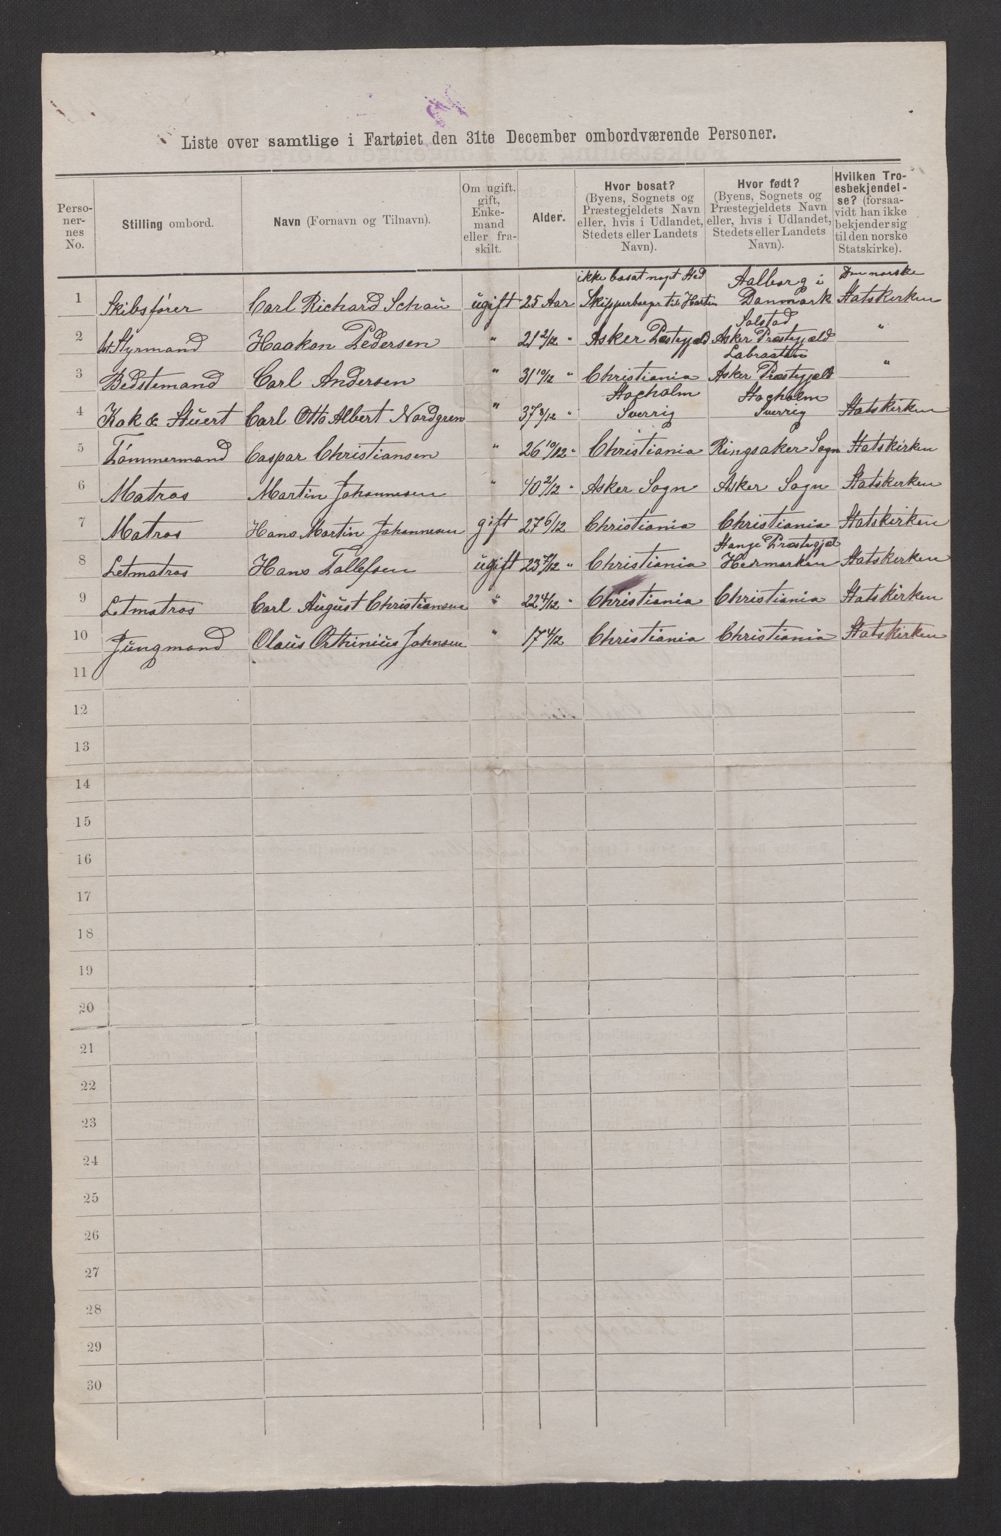 Liste over samtlige i Fartøiet den 31te December ombordværende Personer.
Perso-
ner-
nes
No.
Stilling ombord.
Navn (Fornavn og Tilnavn).
Om ugift,
gift,
Enke-
mand
eller fra-
skilt.
Alder.
Hvor bosat?
(Byens, Sognets og
Præstegjeldets Navn
eller, hvis i Udlandet,
Stedets eller Landets
Navn).
Hvor født?
(Byens, Sognets og
Præstegjeldets Navn
eller, hvis i Udlandet,
Stedets eller Landets
Navn).
Hvilken Tro-
esbekjendel-
se? (forsaa-
vidt han ikke
bekjender sig
til den norske
Statskirke).
ikke bosat noget Sted Aalborg i Den norske
1 Skibsfører Carl Richard Schau ugift 25 Aar Skipperborger til Horten Danmark Statskirken
Solstad
2 Styrmand Haakon Pedersen " 21 2/12 " Asker Præstegjeld Asker Præstegjeld "
Labraaten
3 Bedstemand Carl Andersen " 31 10/12 " Christiania Asker Præstegjeld "
Stocholm Stocholm
4 Kok & Stuert Carl Otto Albert Nordgren " 37 8/12 " Sverrig Sverrig Statskirken
5 Tømmermand Caspar Christiansen " 26 10/12 " Christiania Ringsaker Sogn Statskirken
6 Matros Martin Johannesen " 40 2/12 " Asker Sogn Asker Sogn Statskirken
7 Matros Hans Martin Johannesen gift 27 6/12 Christiania Christiania Statskirken
Stange Præstegjel
8 Letmatros Hans Tollefsen ugift 23 7/12 " Christiania Hedemarken Statskirken
9 Letmatros Carl August Christiansen " 22 4/12 " Christiania Christiania Statskirken
10 Jungmand Olaus Orthinius Johnsen " 17 4/12 Christiania Christiania Statskirken
11
12
13
14
15
16
17
18
19
20
21
22
23
24
25
26
27
28
29
30